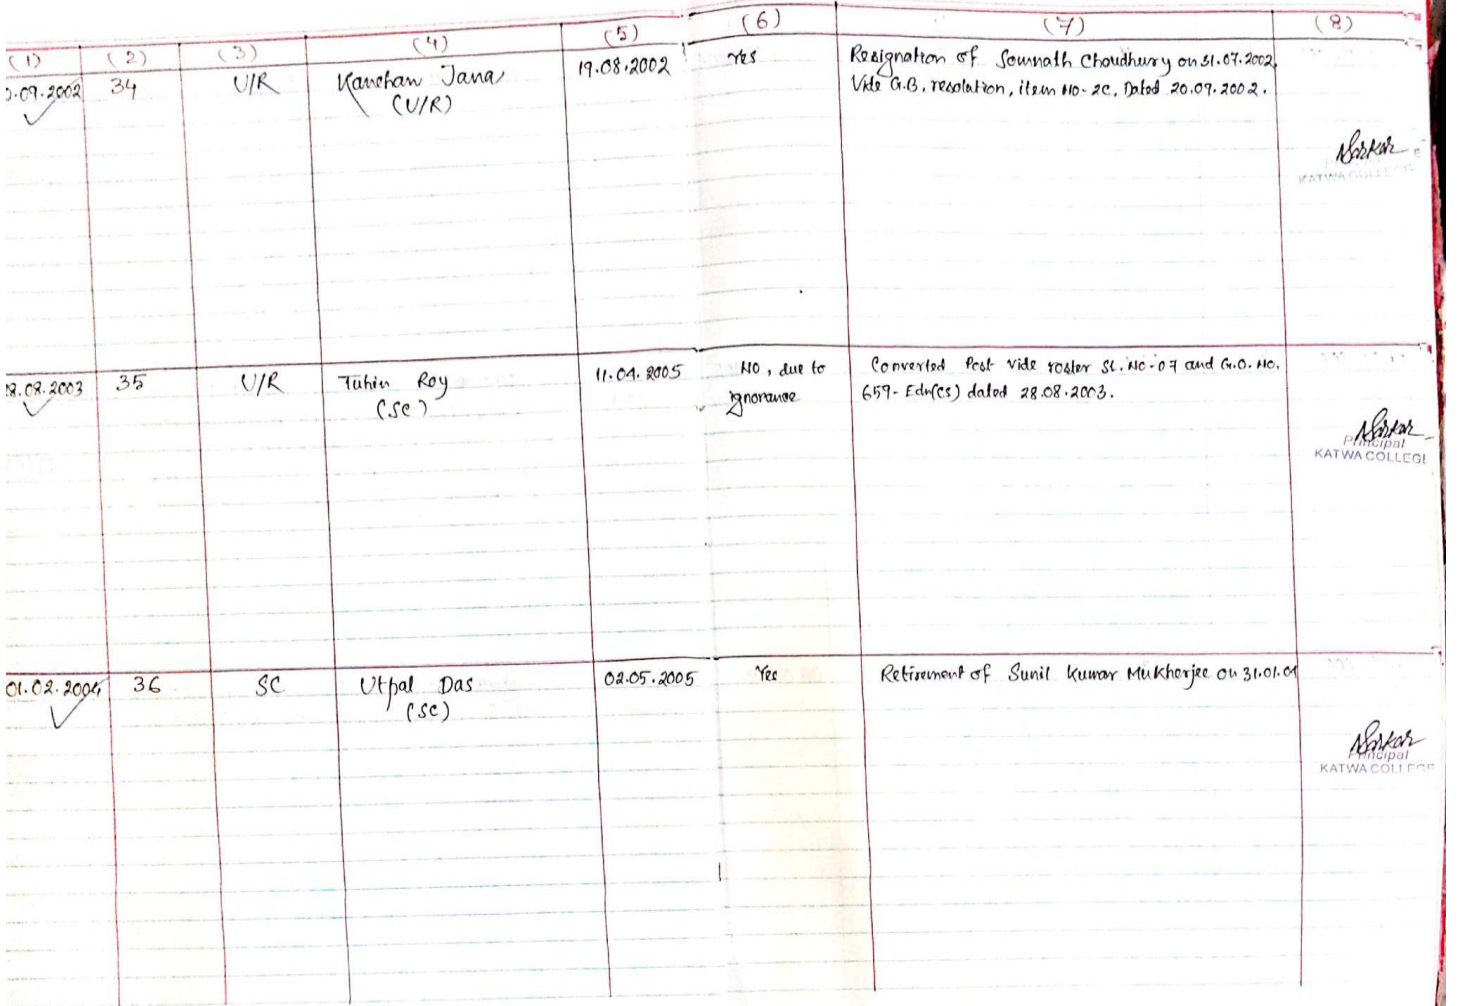 (1) (2) (3) (4) (5) (6) (7) (8)
.09.2002 34 U/R Kanchan Jana 19.08.2002 Yes Resignation of Somnath Choudhury on 31.07.2002,
(U/R) Vide G.B. resolation, item No-2C, Dated 20.09.2002.
KATWA COLLEGE
8.08.2003 35 U/R Tuhin Roy 11.04.2005 No, due to Converted Post vide roster SL. No-07 and G.O. No.
(SC) ignorance 659-Edn(CS) dated 28.08.2003.
Sarkar
Principal
KATWA COLLEGE
01.02.2004 36 SC Utpal Das 02.05.2005 Yes Retirement of Sunil Kumar Mukherjee on 31.01.04
(SC)
Sarkar
Principal
KATWA COLLEGE